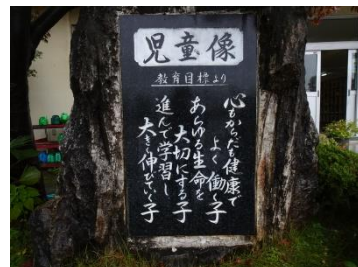 児童像
教育目標より
心もからだも健康で
よく働く子
あらゆる生命を
大切にする子
進んで学習し
大きく伸びていく子